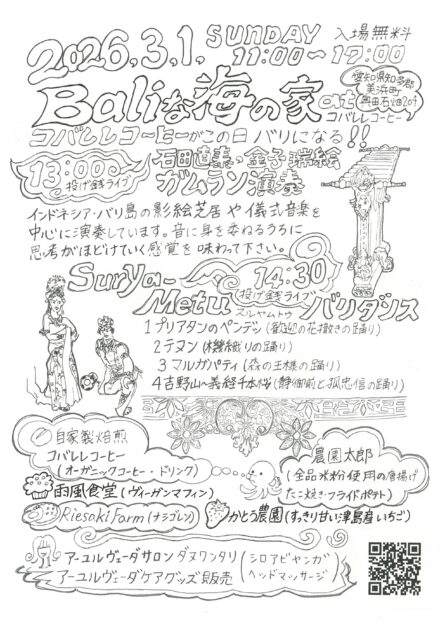 2026.3.1. SUNDAY
11:00〜17:00
入場無料
Baliな海の家 at コバレレコーヒー
愛知県知多郡
美浜町
奥田石畑204
コバレレコーヒーがこの日バリになる!!
13:00〜
投げ銭ライブ
石田直素・金子瑞絵
ガムラン演奏
インドネシア・バリ島の影絵芝居や儀式音楽を
中心に演奏しています。音に身を委ねるうちに
思考がほどけていく感覚を味わって下さい。
Surya-Metu
スルヤムトゥ
14:30
投げ銭ライブ
バリダンス
1 プリアタンのペンデッ (歓迎の花撒きの踊り)
2 テヌン (機織りの踊り)
3 マルガパティ (森の王様の踊り)
4 吉野山〜義経千本桜 (静御前と狐忠信の踊り)
自家製焙煎
コバレレコーヒー
(オーガニックコーヒー・ドリンク)
農園太郎
(全品米粉使用の唐揚げ
たこ焼き・フライドポテト)
雨風食堂 (ヴィーガンマフィン)
Riesaki Farm (ナシゴレン)
かとう農園 (すっきり甘い津島産いちご)
アーユルヴェーダサロン ダヌワンタリ
アーユルヴェーダケアグッズ販売
(シロアビヤンガ
ヘッドマッサージ)